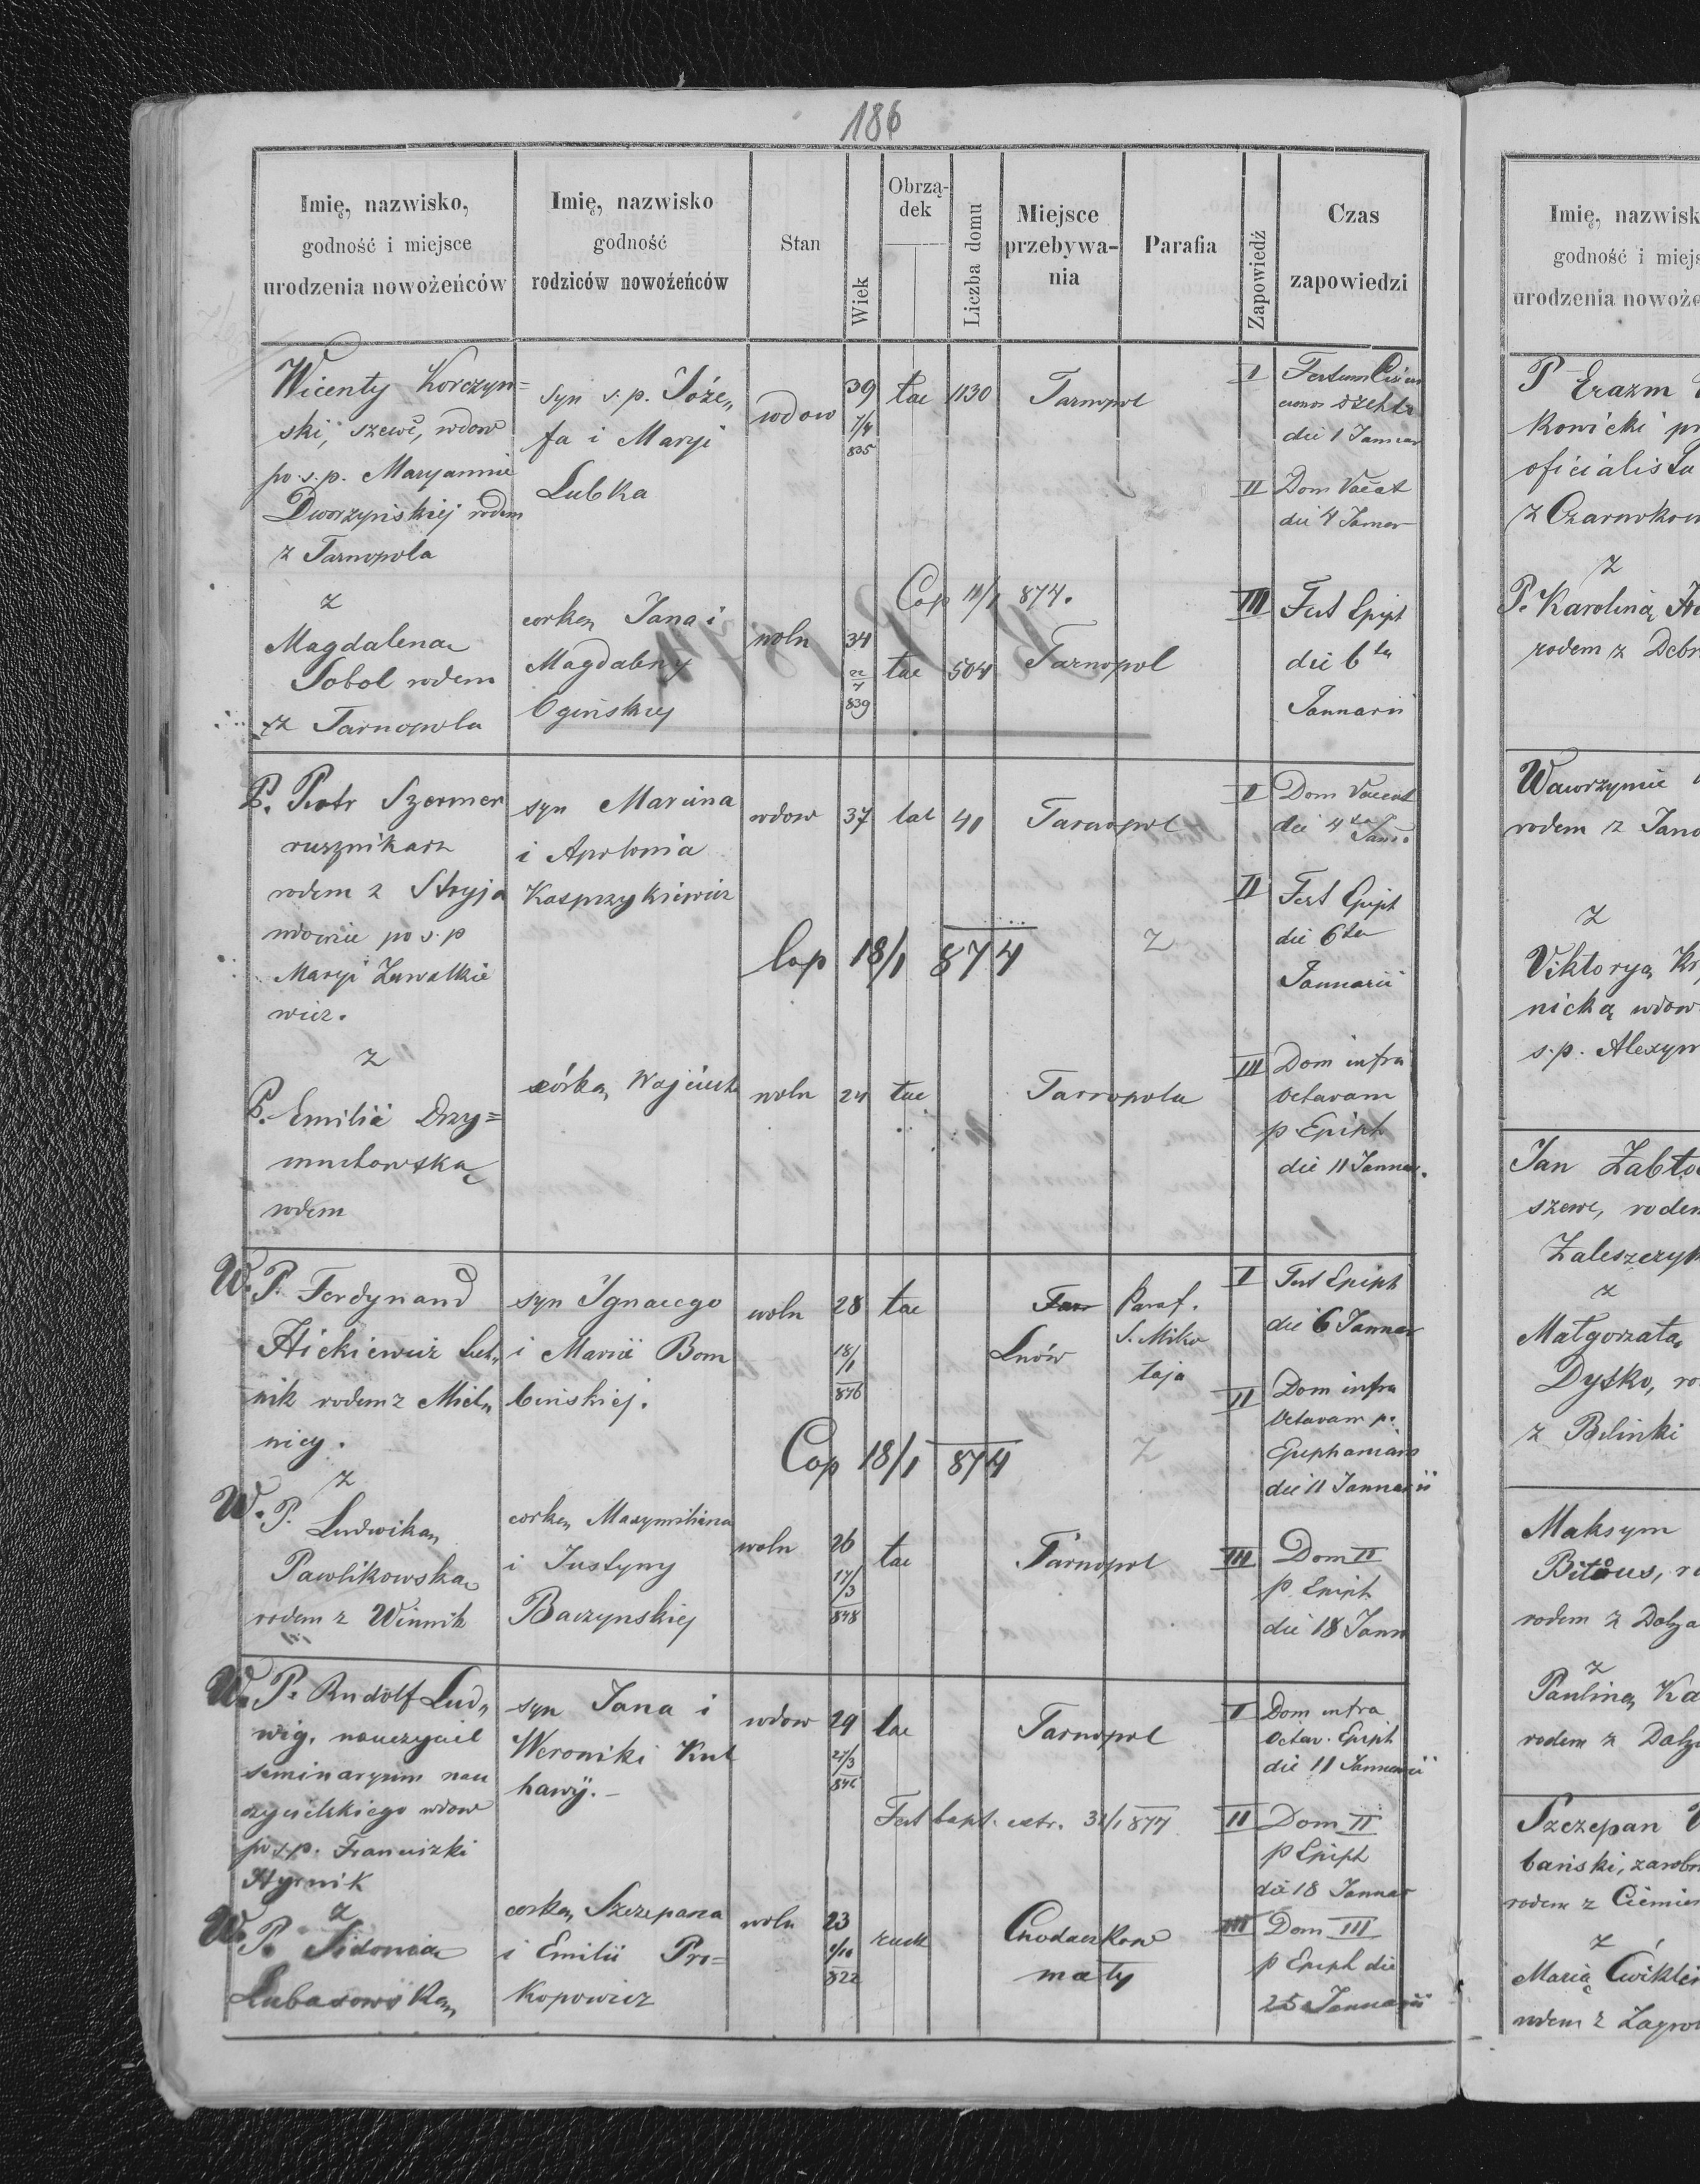 186
Imię, nazwisko,
godność i miejsce
urodzenia nowożeńców
Imię, nazwisko
godność
rodziców nowożeńców
Stan
Wiek
Obrzą-
dek
Liczba domu
Miejsce
przebywa-
nia
Parafia
Zapowiedź
Czas
zapowiedzi
Wicenty Korczyn=
ski, szewc, wdow
po s.p. Maryannie
Dworzyńskiej rodem
z Tarnopola
syn s.p. Józe„
fa i Maryi
Lubka
wdow
39
1/4
835
łac
1130
Tarnopol
I
die 1 Januar
II Dom Vacat
die 4 Januar
z
Magdalena
Sobol rodem
z Tarnopola
corka Jana i
Magdaleny
Ogińskiej
woln
34
22
7
839
łac
504
Tarnopol
Cop 11/1 874.
III Fest Epiph
die 6ta
Januarii
P. Piotr Szermer
rusznikarz
rodem z Stryja
wdowiec po s.p
Maryi Zawalkie
wicz.
syn Marcina
i Apolonia
Kasprzykiewicz
wdow
37
lac
41
Tarnopol
Cop 18/1 874
z
I Dom Vacat
die 4ta Janr.
II Fest Epiph
die 6ta
Januarii
z
P. Emilia Dzy=
rodem
córka Wojciech
woln
24
łac
Tarnopola
III Dom infra
Octavam
p Epiph
die 11 Januar.
W. P. Ferdynand
Hickiewicz
nik rodem z Miel„
nicy.
syn Ignacego
i Marii Bom
bińskiej.
woln
28
18/
/1
846
łac
Tar
Lwów
Paraf.
S. Miko
łaja
Cop 18/1 874
z
I Fest Epiph
die 6 Januar
II Dom infra
Octavam p.
Epiphaniam
die 11 Januarii
z
W. P. Ludwika
Pawlikowska
rodem z Winnik
corka Maxymiliana
i Justyny
Baczynskiej
woln
26
17/
/3
848
łac
Tarnopol
III Dom II
p Epiph
die 18 Janu
W. P. Rudolf Lud„
wig, nauczyciel
seminaryum nau
czycielskiego wdow
po s.p. Franciszki
Hyrnik
syn Jana i
Weroniki Kut
hawÿ.-
wdow
29
27/3
846
łac
Tarnopol
Test bapt. extr. 31/1 877
I Dom infra
Octav. Epiph
die 11 Januarii
II Dom II
p Epiph
die 18 Januar
z
W. P. Sidonia
corka Szczepana
i Emilii Pro=
kopowicz
woln
23
822
rusk
Chodaczkow
mały
III Dom III
p Epiph die
25 Januarii
Imię, nazwisk
godność i miejs
urodzenia nowoże
P Erazm
kowicki pr
oficialista
z
P. Karolina
rodem z Debr
Wawrzyniec
rodem z Jano
z
Viktorya
nicką wdow
s.p.
Jan Zabło
szewc, rodem
Zaleszczyk
z
Małgorzata
Dysko, ro
z Bilinki
Maksym
rodem z
z
Paulina Ka
rodem z
Szczepan
bański, zarobn
rodem z
z
Maria
rodem z Zagrob